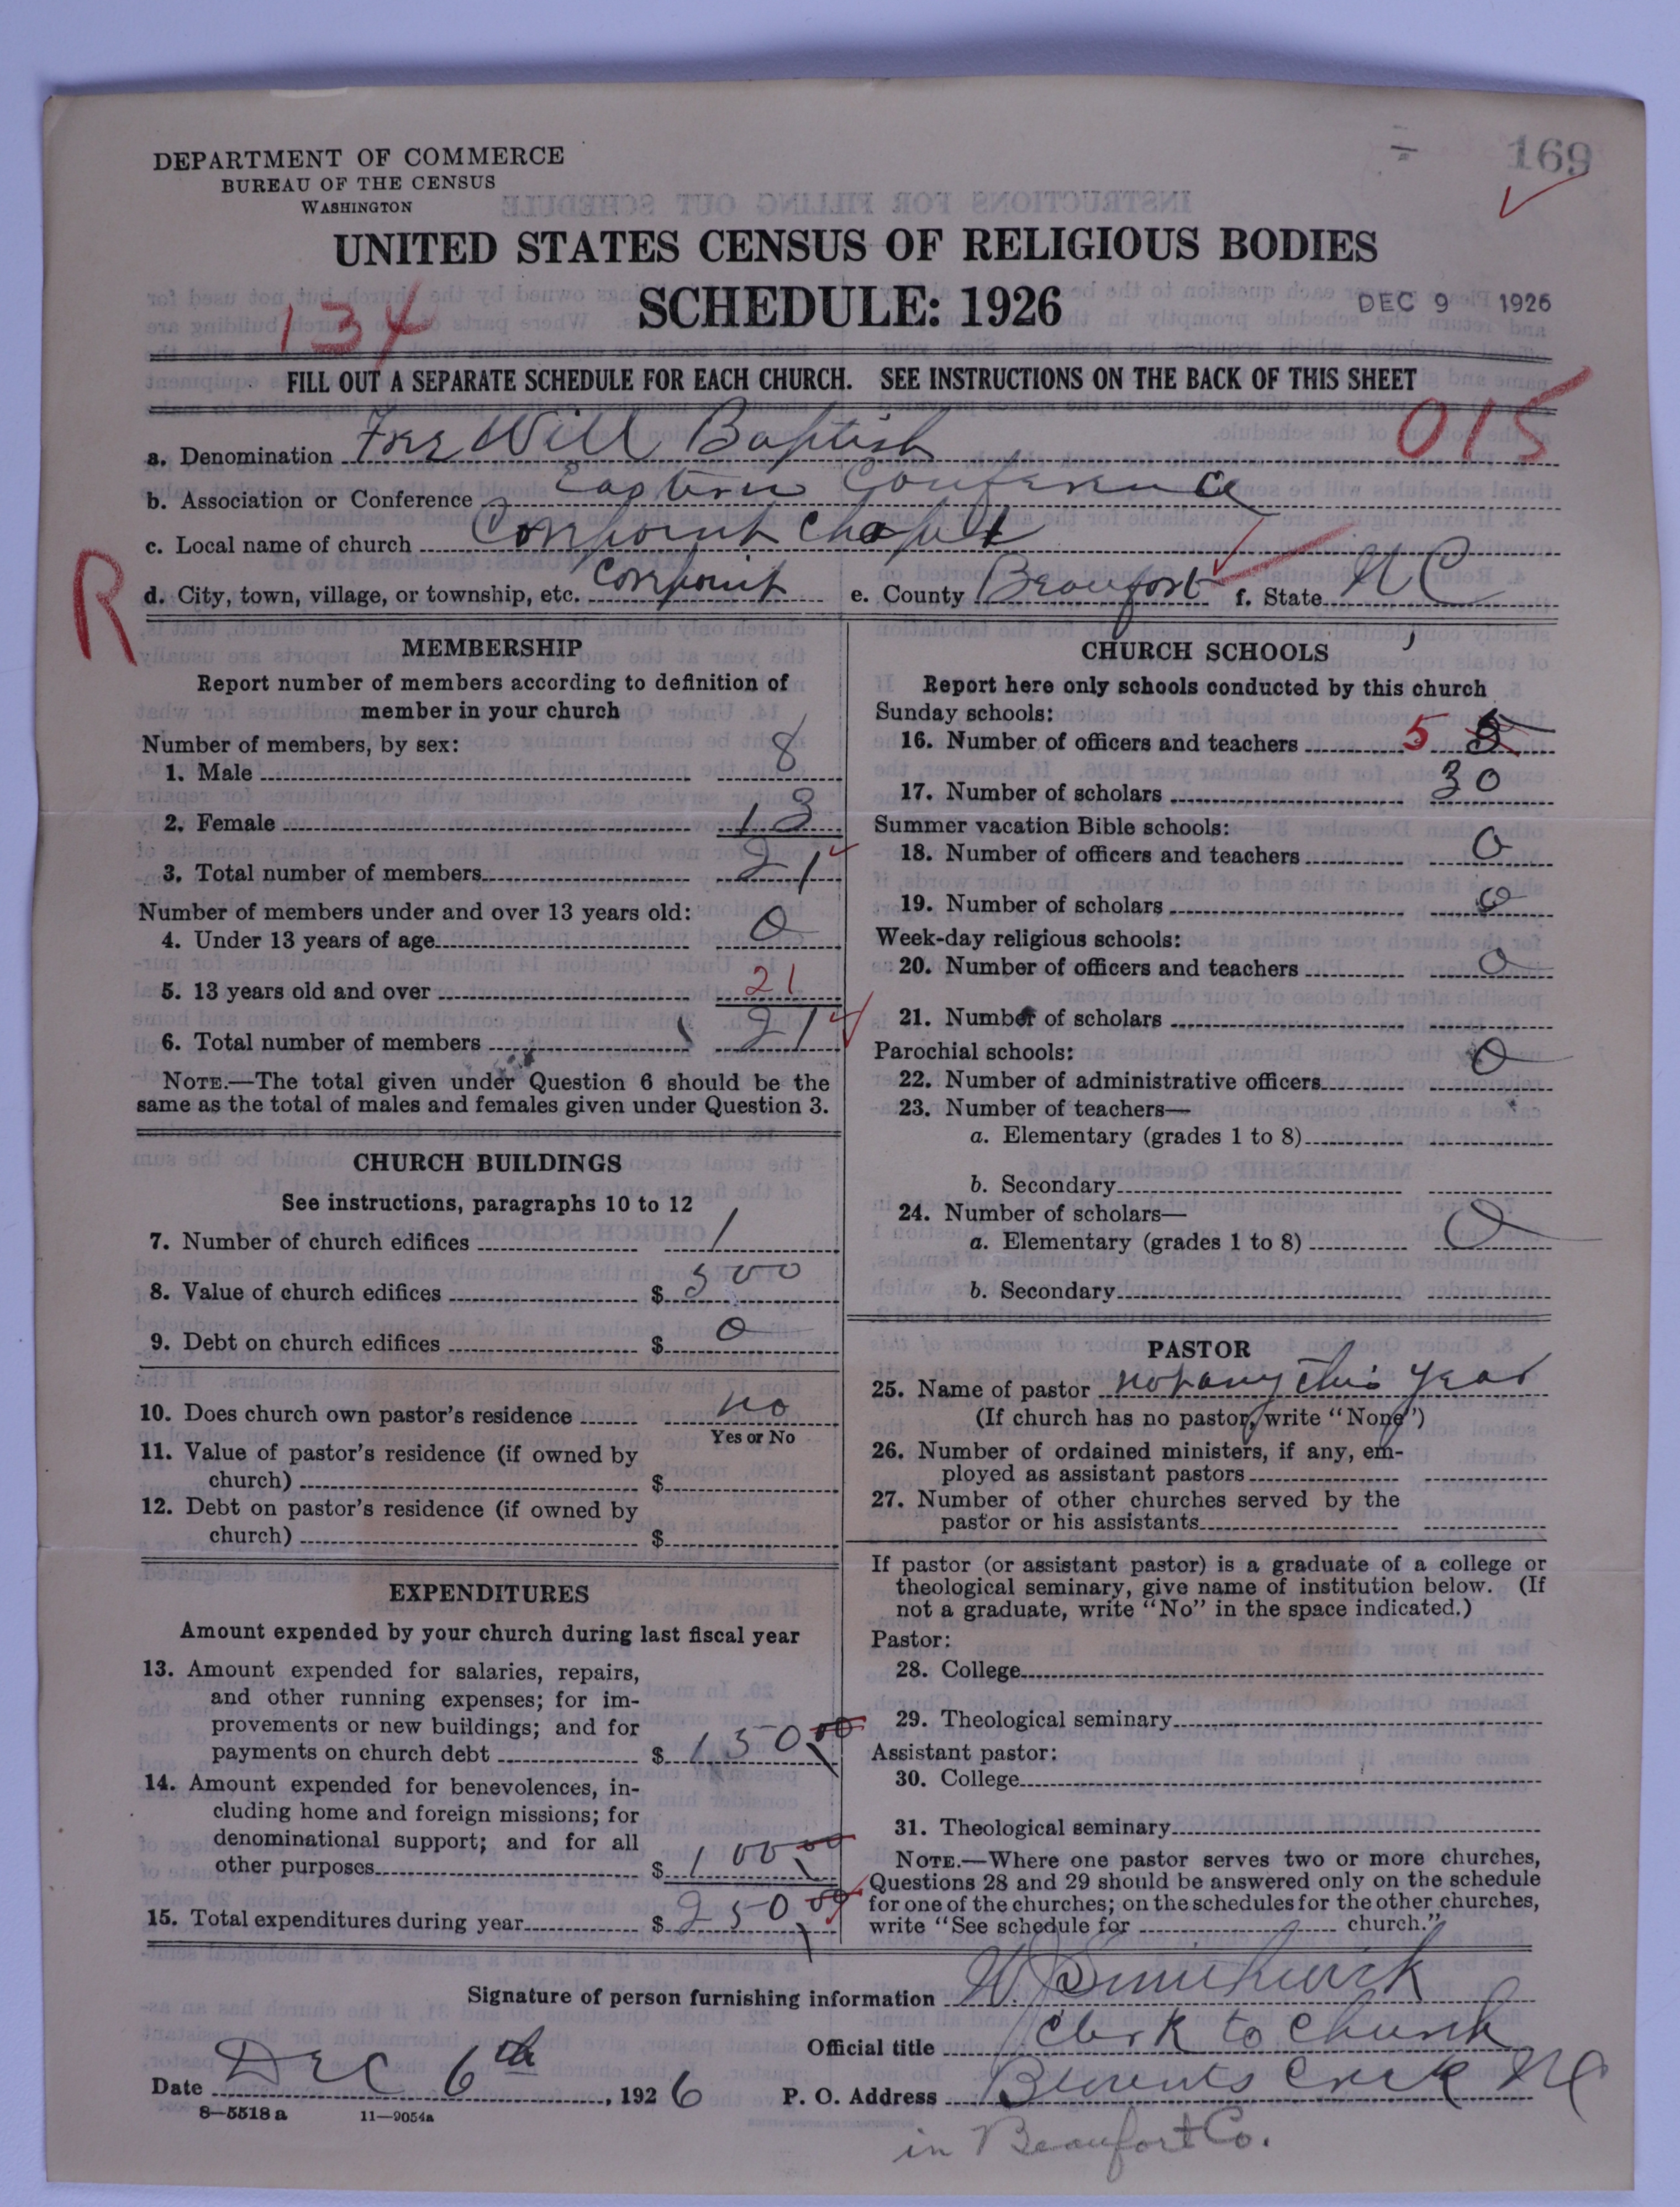 169
DEPARTMENT OF COMMERCE
BUREAU OF THE CENSUS
WASHINGTON
UNITED STATES CENSUS OF RELIGIOUS BODIES
SCHEDULE: 1926
DEC 9 1926
134
FILL OUT A SEPARATE SCHEDULE FOR EACH CHURCH. SEE INSTRUCTIONS ON THE BACK OF THIS SHEET
015
a. Denomination Free Will Baptist
b. Association or Conference Eastern Conference
c. Local name of church Corepoint Chapel
d. City, town, village, or township, etc. Corepoint e. County Beaufort f. State N C
R
MEMBERSHIP
Report number of members according to definition of
member in your church
Number of members, by sex:
1. Male 8
2. Female 13
3. Total number of members 21
Number of members under and over 13 years old:
4. Under 13 years of age 0
5. 13 years old and over 21
6. Total number of members 21
NOTE.—The total given under Question 6 should be the
same as the total of males and females given under Question 3.
CHURCH BUILDINGS
See instructions, paragraphs 10 to 12
7. Number of church edifices 1
8. Value of church edifices $ 500
9. Debt on church edifices $ 0
10. Does church own pastor's residence no
Yes or No
11. Value of pastor's residence (if owned by
church) $
12. Debt on pastor's residence (if owned by
church) $
EXPENDITURES
Amount expended by your church during last fiscal year
13. Amount expended for salaries, repairs,
and other running expenses; for im-
provements or new buildings; and for
payments on church debt $ 150 00
14. Amount expended for benevolences, in-
cluding home and foreign missions; for
denominational support; and for all
other purposes $ 100 00
15. Total expenditures during year $ 250 00
CHURCH SCHOOLS
Report here only schools conducted by this church
Sunday schools:
16. Number of officers and teachers 5
17. Number of scholars 30
Summer vacation Bible schools:
18. Number of officers and teachers 0
19. Number of scholars 0
Week-day religious schools:
20. Number of officers and teachers 0
21. Number of scholars
Parochial schools:
22. Number of administrative officers 0
23. Number of teachers—
a. Elementary (grades 1 to 8)
b. Secondary
24. Number of scholars—
a. Elementary (grades 1 to 8) 0
b. Secondary
PASTOR
25. Name of pastor not any this year
(If church has no pastor, write "None")
26. Number of ordained ministers, if any, em-
ployed as assistant pastors
27. Number of other churches served by the
pastor or his assistants
If pastor (or assistant pastor) is a graduate of a college or
theological seminary, give name of institution below. (If
not a graduate, write "No" in the space indicated.)
Pastor:
28. College
29. Theological seminary
Assistant pastor:
30. College
31. Theological seminary
NOTE.—Where one pastor serves two or more churches,
Questions 28 and 29 should be answered only on the schedule
for one of the churches; on the schedules for the other churches,
write "See schedule for church."
Signature of person furnishing information
Official title Clerk to Church
Date Dec 6th, 1926 P. O. Address Blounts Creek N C
8—5518 a 11—9054a
in Beaufort Co.